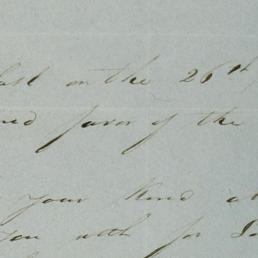 last on the 26th
favor of the
your kind
you with for